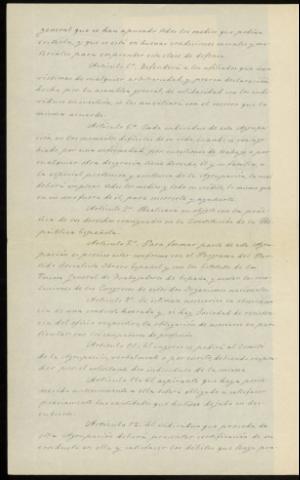 general que se han apurado todos los medios que podían
evitarla, y que se está en buenas condiciones morales y ma-
teriales para emprender esta clase de defensa.
Artículo 5º. Defenderá a los afiliados que sean
víctimas de cualquier arbitrariedad, y previa declaración
hecha por la asamblea general, de solidaridad con los indi-
viduos en cuestión, se les auxiliará con el socorro que la
misma acuerde.
Artículo 6º. Cada individuo de esta Agrupa-
ción en los momentos difíciles de su vida, cuando es
por una enfermedad, por cuestiones de trabajo o por
cualquier otra desgracia tiene derecho él y su familia, a
la especial y de la Agrupación, la cual
deberá emplear todos los medios y todo su
en uno fuera de él, para socorrerle y ayudarle.
Artículo 7º. Realizará su objeto con la prác-
tica de los derechos consignados en la Constitución de la Re-
pública Española.
Artículo 8º. Para formar parte de esta Agru-
pación es preciso estar conforme con el Programa del Par-
tido Socialista Obrero Español, y con los Estatutos de la
Unión General de Trabajadores de España, y acatar las reso-
luciones de los Congresos de estos dos Organismos nacionales.
Artículo 9º. Se estiman necesarios
de una conducta honrada y, si hay Sociedad de resisten-
cia del oficio respectivo, la obligación de asociarse en par-
ticular con los compañeros de profesión.
Artículo 10. El ingreso se pedirá al Comité
de la Agrupación, verbalmente o por escrito, debiendo respon-
der por el solicitante dos individuos de la misma.
Artículo 11. El aspirante que haya perte-
necido anteriormente a ella estará obligado a satisfacer
previamente las cantidades que hubiese dejado en des-
cubierto.
Artículo 12. El individuo que proceda de
otra Agrupación deberá presentar certificación de su
conducta en ella y satisfacer los débitos que tenga pen-